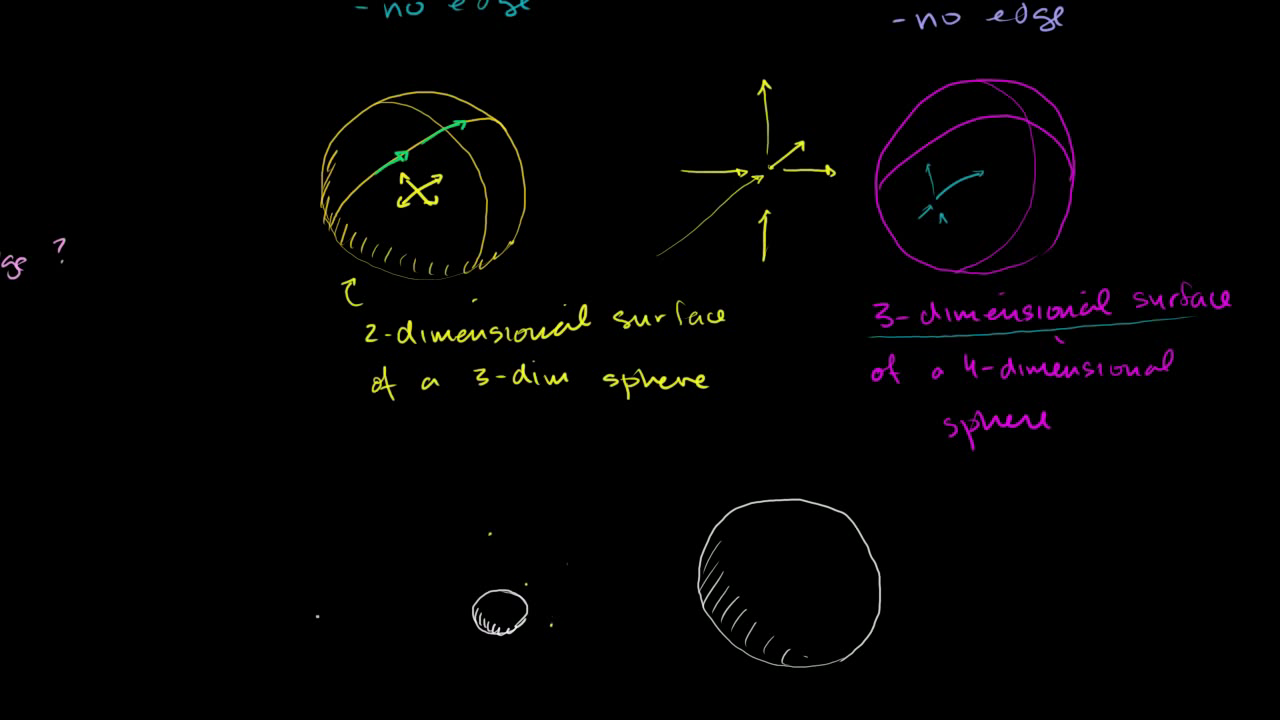 - no edge
- no edge
?
2-dimensional surface
of a 3-dim sphere
3-dimensional surface
of a 4-dimensional
sphere